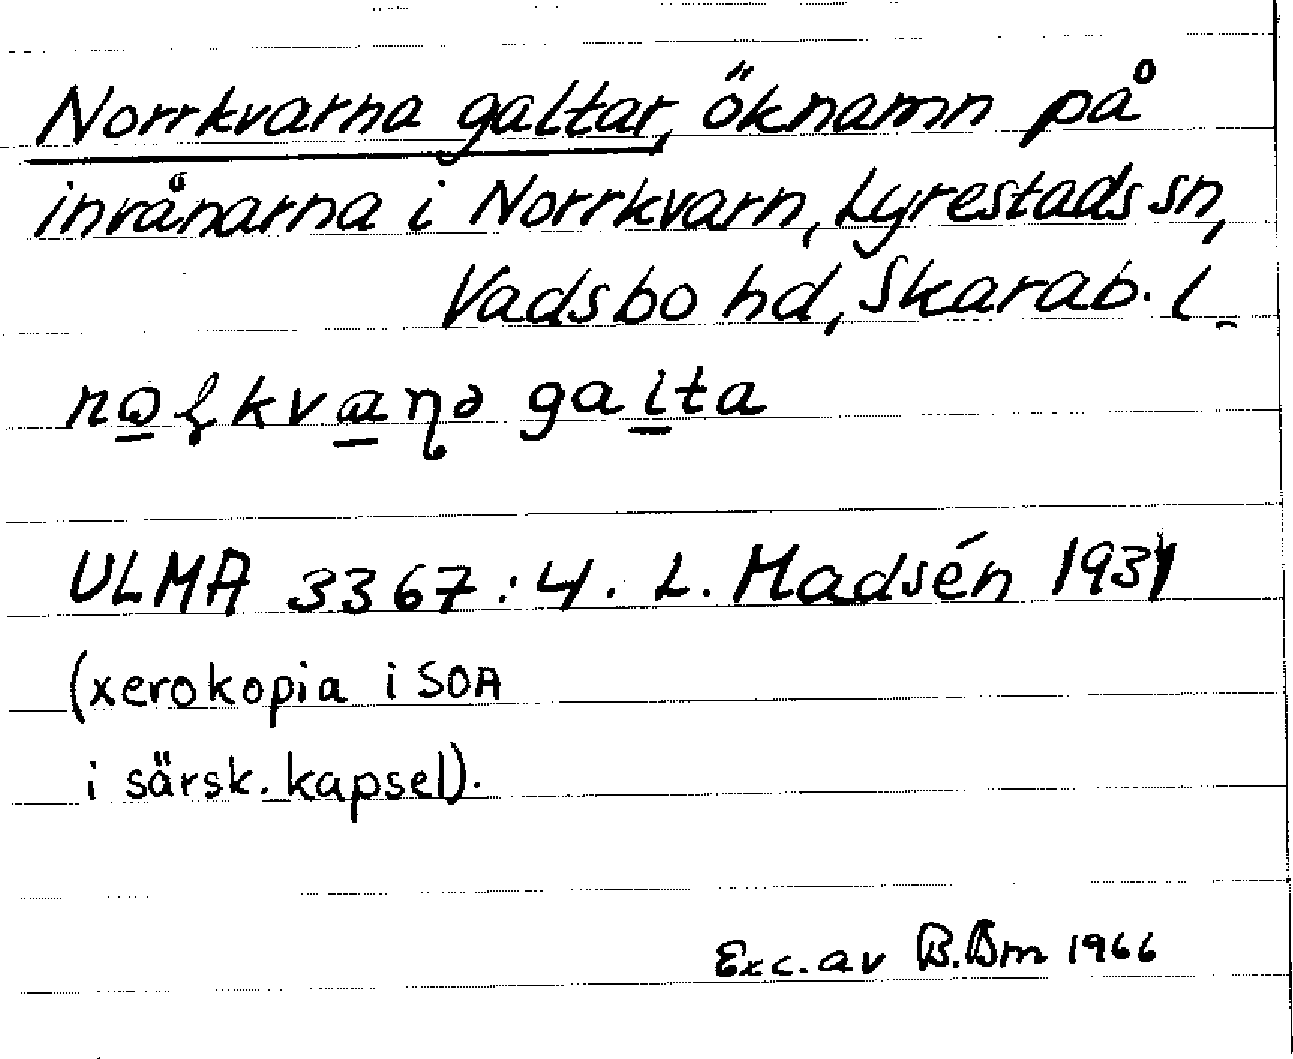 Norrkvarna galtar, öknamn på
invånarna i Norrkvarn, Lyrestads sn,
Vadsbo hd, Skarab. l.
galta
ULMA 3367:4. L. Madsén 1931
(xerokopia i SOA
i särsk. kapsel).
Exc. av B.Bm 1966